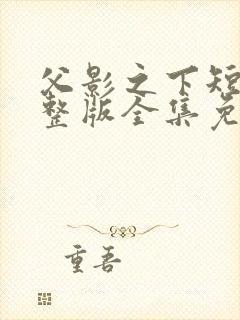 父影之下短
整版全集免
重吾